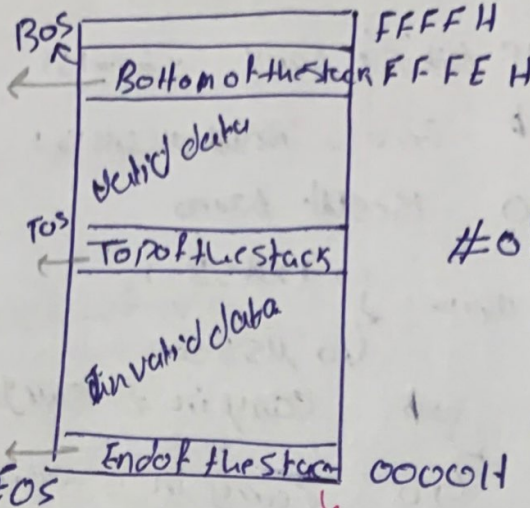 BOS FFFFH
Bottom of the stack FFFEH
valid data
TOS
Top of the stack #0
invalid data
End of the stack 0000H
EOS